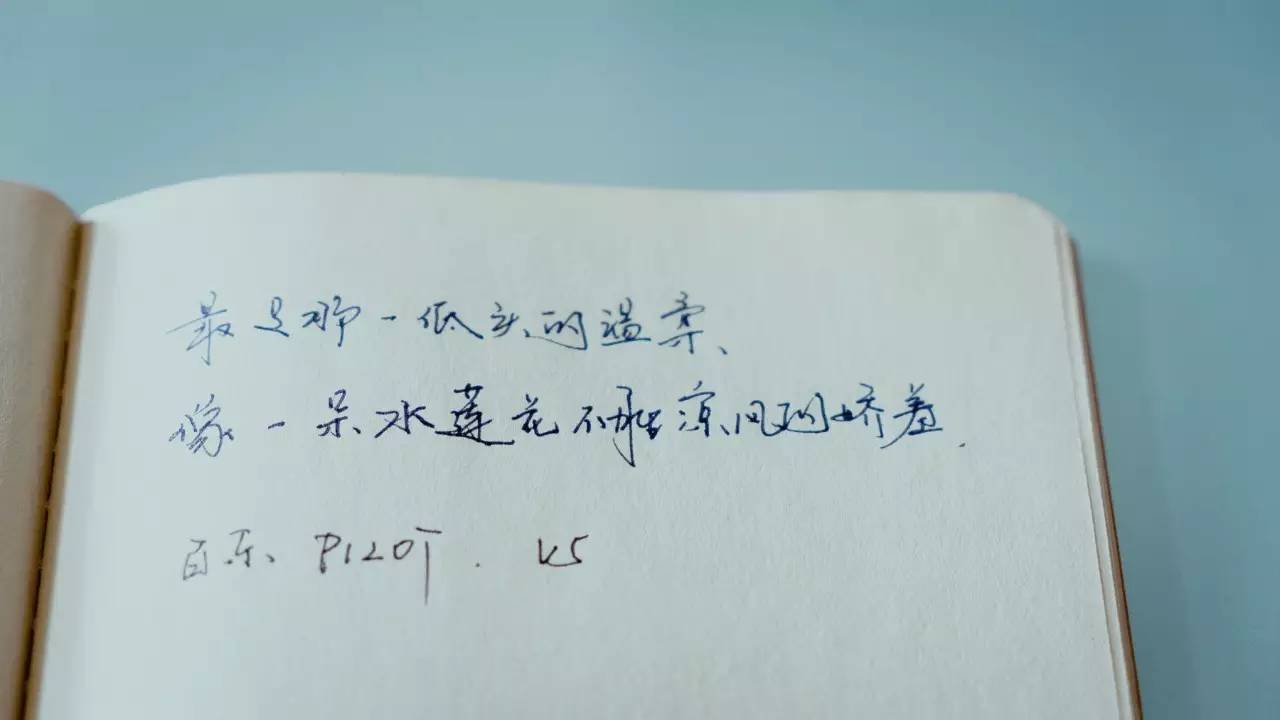 最是那一低头的温柔、
像一朵水莲花不胜凉风的娇羞.
百乐、PILOT. V5